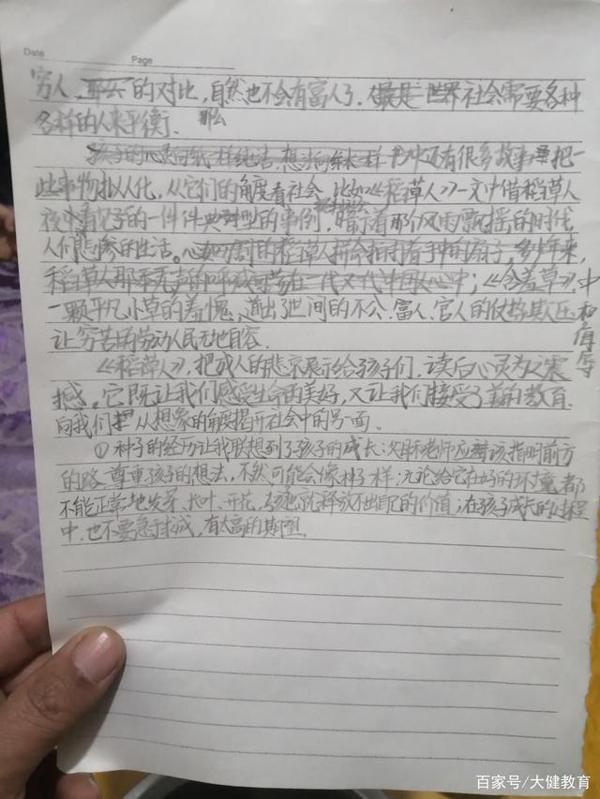 Date
Page
穷人、那么的对比，自然也不会有富人了，但是世界社会需要各种
各样的人来平衡，那么
孩子的心灵向纸一样纯洁，想 一样 书中还有很多故事是把
一些事物拟人化，从它们的角度看社会，比如《稻草人》一文中借稻草人
夜中看见了的一件件典型的事例，暗示着那个风雨飘摇的时代，
人们悲惨的生活。 的稻草人 手中的扇子，多少年来，
稻草人那 无声的呼 一代又一代中国人心中；《含羞草》，中
一颗平凡小草的羞愧，道出了世间的不公，富人、官人的仗势欺压和侮辱
让穷苦的劳动人民无地自容。
《稻草人》，把成人的悲哀展示给孩子们，读后心灵为之震
撼，它既让我们感受生命的美好，又让我们接受了美的教育
向我们把 从想象的角度揭开社会中的另一面。
①种子的经历让我联想到了孩子的成长：父母和老师应该指明前方
的路，尊重孩子的想法，不然可能会像种子一样；无论给它在好的环境，都
不能正常地发芽、长叶、开花， 释放不出自己的价值；在孩子成长的过程
中，也不要急于求成，有太高的期望。
百家号/大健教育